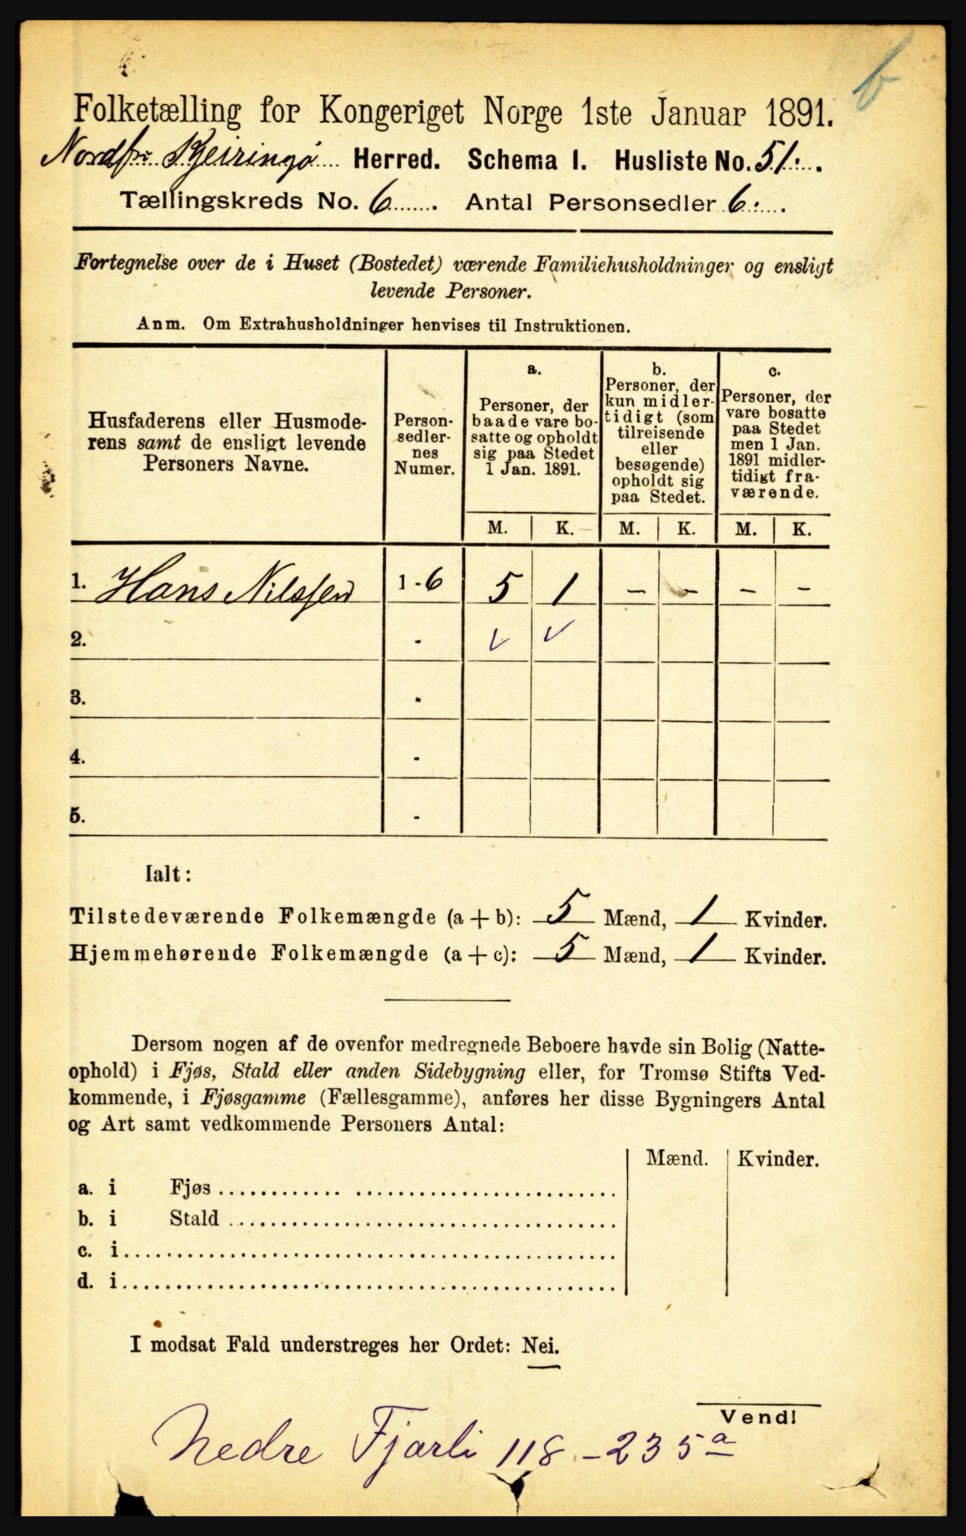 b
Folketælling for Kongeriget Norge 1ste Januar 1891.
Nordfr Kjeringø Herred. Schema I. Husliste No. 51.
Tællingskreds No. 6 Antal Personsedler 6.
Fortegnelse over de i Huset (Bostedet) værende Familiehusholdninger og ensligt
levende Personer.
Anm. Om Extrahusholdninger henvises til Instruktionen.
Husfaderens eller Husmode-
rens samt de ensligt levende
Personers Navne.
Person-
sedler-
nes
Numer.
a.
Personer, der
baade vare bo-
satte og opholdt
sig paa Stedet
1 Jan. 1891.
b.
Personer, der
kun midler-
tidigt (som
tilreisende
eller
besøgende)
opholdt sig
paa Stedet.
c.
Personer, der
vare bosatte
paa Stedet
men 1 Jan.
1891 midler-
tidigt fra-
værende.
M. K. M. K. M. K.
1. Hans Nilssen 1-6 5 1 – – – –
2. - ✓ ✓
3. -
4. -
5. -
Ialt:
Tilstedeværende Folkemængde (a+b): 5 Mænd, 1 Kvinder.
Hjemmehørende Folkemængde (a+c): 5 Mænd, 1 Kvinder.
Dersom nogen af de ovenfor medregnede Beboere havde sin Bolig (Natte-
ophold) i Fjøs, Stald eller anden Sidebygning eller, for Tromsø Stifts Ved-
kommende, i Fjøsgamme (Fællesgamme), anføres her disse Bygningers Antal
og Art samt vedkommende Personers Antal:
Mænd. Kvinder.
a. i Fjøs
b. i Stald
c. i
d. i
I modsat Fald understreges her Ordet: Nei.
Vend!
Nedre Fjarli 118-235a